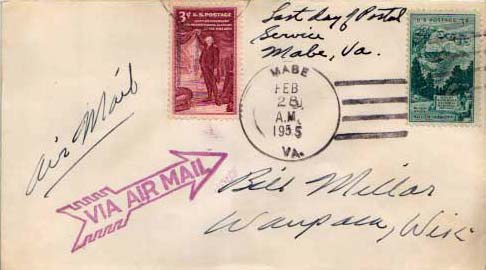 Last day of Postal
Service
Mabe, Va.
3¢ U.S. POSTAGE
U.S. POSTAGE 3¢
MABE
FEB
28
A.M.
1955
VA.
Air Mail
VIA AIR MAIL
Bill Millar
Waupaca, Wis.